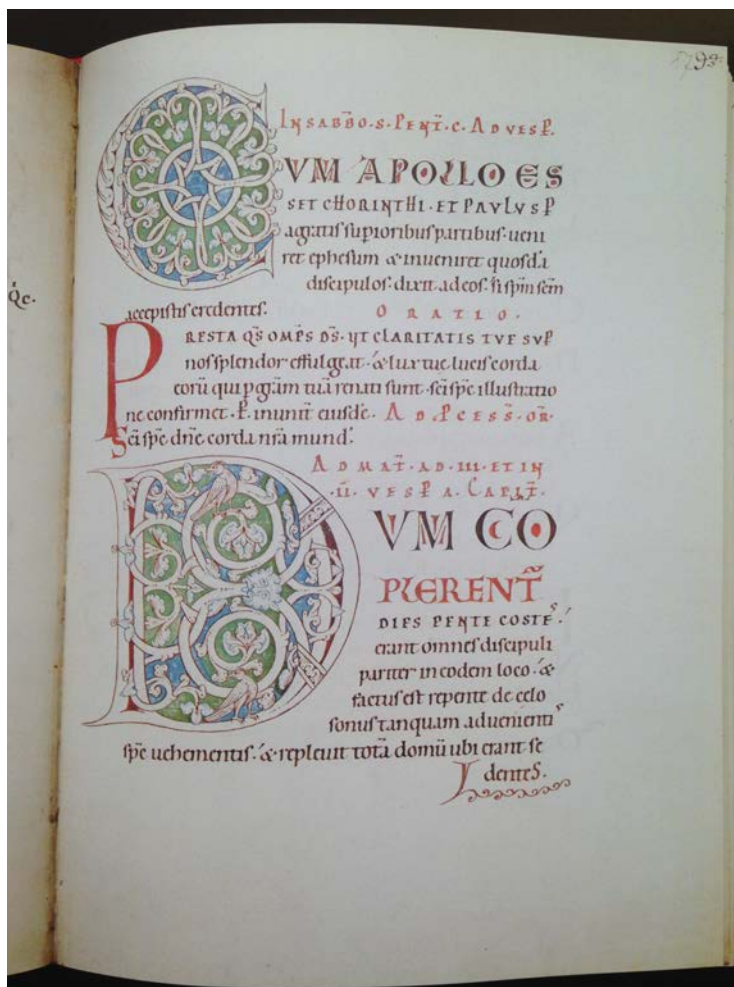 INSABBO·S·PENT·C·ADVESP̄.
CVM APOLLO ES
SET CHORINTHI·ET PAVLVS P
agratis supioribus partibus· ueni
ret ephesum & inueniret quosdā
discipulos· dixit ad eos· si spm̄ scm̄
accepistis credentes. ORATIO.
PRESTA QS̄ OMPS̄ DS̄·VT CLARITATIS TVE SVP̄
nos splendor effulgeat·& lux tue lucis corda
eorū qui p grām tuā renati sunt· sc̄i spc̄ illustratio
ne confirmet·P̄. in unit̄ eiusdē. AD PCESS̄·OR̄·
Sc̄i spc̄ dne corda nrā mund̄.
Qc̄·
AD MAT̄·AD·III·ET IN
·II·VESPA·CAPIT̄·
DVM CO
PLERENT̄
DIES PENTECOSTES·
erant omnes discipuli
pariter in eodem loco·&
factus est repente de celo
sonus tanquam aduenientis
spc̄ uehementis·& repleuit totā domū ubi erant se
dentes.